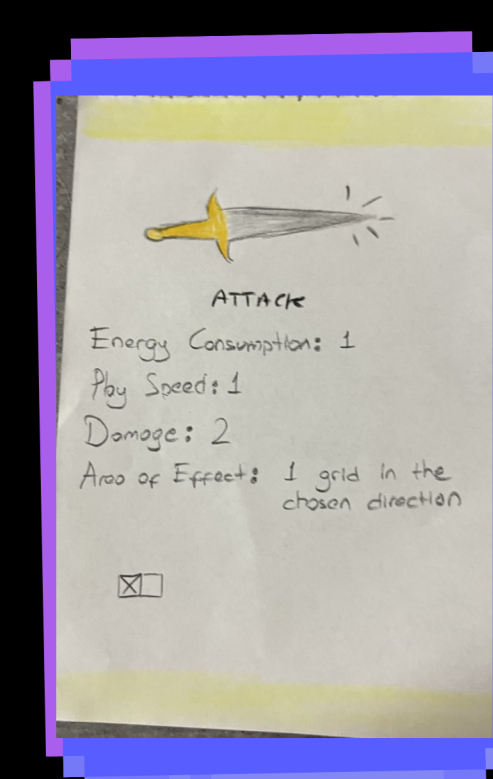 ATTACK
Energy Consumption: 1
Play Speed: 1
Damage: 2
Area of Effect: 1 grid in the
chosen direction